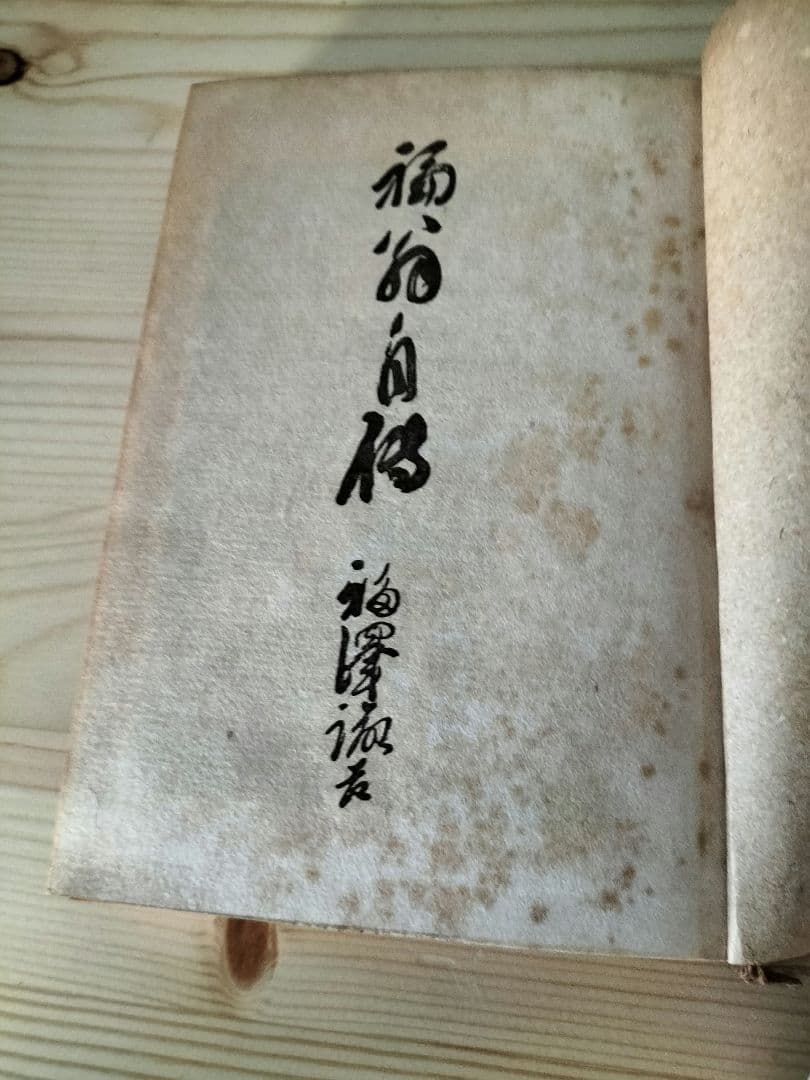 福翁自傳
福澤諭吉